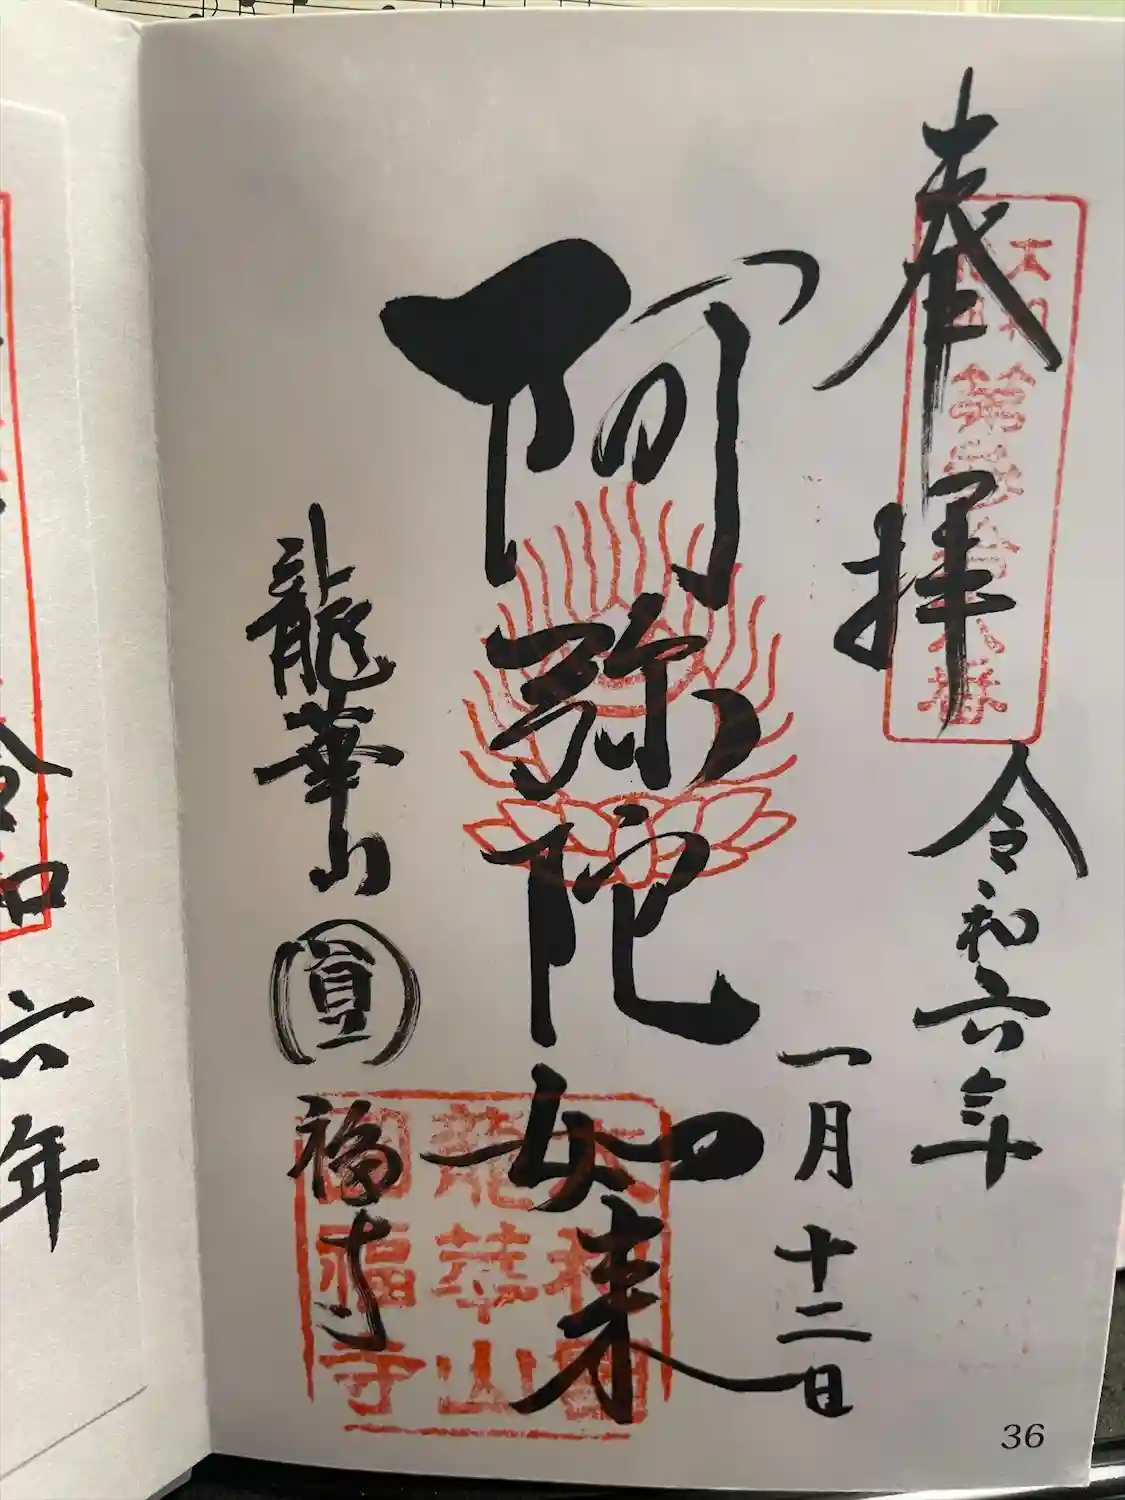 奉拝
令和六年
一月十二日
阿弥陀如来
龍華山
圓福寺
大和
龍華山
福寺
36
令和
六年